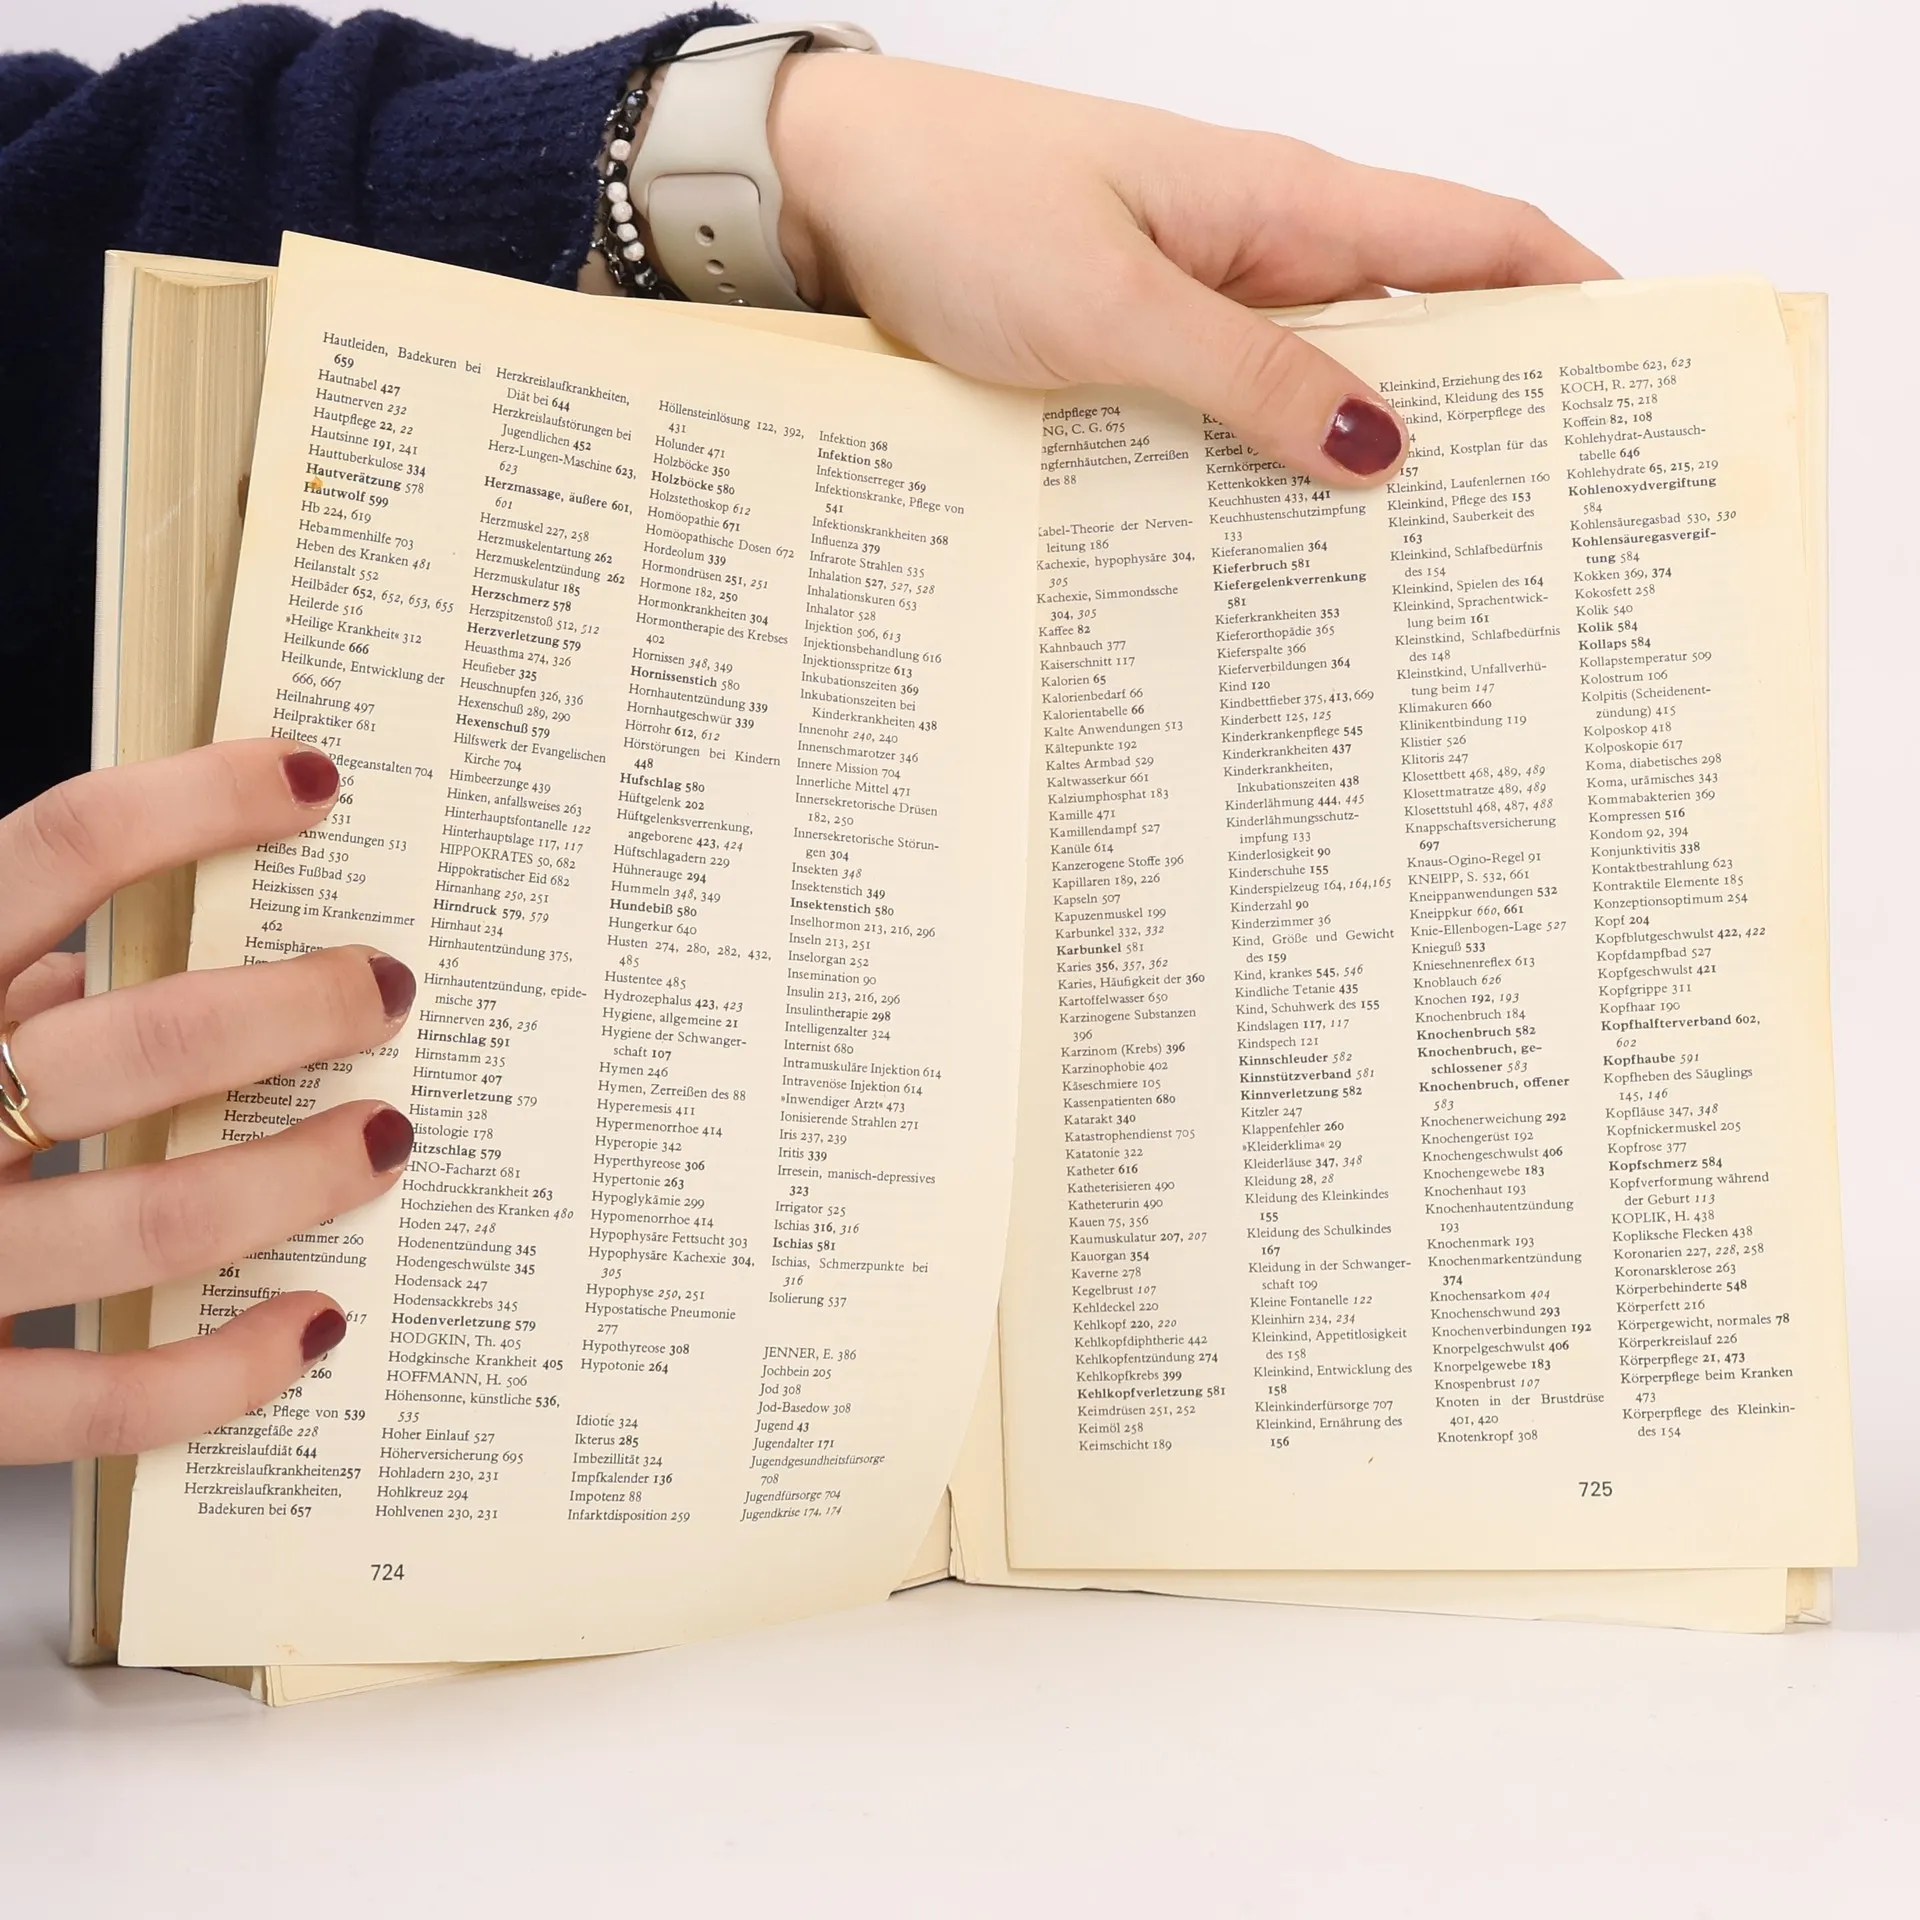 Hautleiden, Badekuren bei
659
Hautnabel 427
Hautnerven 232
Hautpflege 22, 22
Hautsinne 191, 241
Hauttuberkulose 334
Hautverätzung 578
Hautwolf 599
Hb 224, 619
Hebammenhilfe 703
Heben des Kranken 481
Heilanstalt 552
Heilbäder 652, 652, 653, 655
Heilerde 516
»Heilige Krankheit« 312
Heilkunde 666
Heilkunde, Entwicklung der
666, 667
Heilnahrung 497
Heilpraktiker 681
Heiltees 471
Pflegeanstalten 704
56
66
531
Anwendungen 513
Heißes Bad 530
Heißes Fußbad 529
Heizkissen 534
Heizung im Krankenzimmer
462
229
229
228
Herzbeutel 227
260
261
617
260
578
Pflege von 539
228
Herzkreislaufdiät 644
Herzkreislaufkrankheiten257
Herzkreislaufkrankheiten,
Badekuren bei 657
Herzkreislaufkrankheiten,
Diät bei 644
Herzkreislaufstörungen bei
Jugendlichen 452
Herz-Lungen-Maschine 623,
623
Herzmassage, äußere 601,
601
Herzmuskel 227, 258
Herzmuskelentartung 262
Herzmuskelentzündung 262
Herzmuskulatur 185
Herzschmerz 578
Herzspitzenstoß 512, 512
Herzverletzung 579
Heuasthma 274, 326
Heufieber 325
Heuschnupfen 326, 336
Hexenschuß 289, 290
Hexenschuß 579
Hilfswerk der Evangelischen
Kirche 704
Himbeerzunge 439
Hinken, anfallsweises 263
Hinterhauptsfontanelle 122
Hinterhauptslage 117, 117
HIPPOKRATES 50, 682
Hippokratischer Eid 682
Hirnanhang 250, 251
Hirndruck 579, 579
Hirnhaut 234
Hirnhautentzündung 375,
436
Hirnhautentzündung, epide-
mische 377
Hirnnerven 236, 236
Hirnschlag 591
Hirnstamm 235
Hirntumor 407
Hirnverletzung 579
Histamin 328
Histologie 178
Hitzschlag 579
HNO-Facharzt 681
Hochdruckkrankheit 263
Hochziehen des Kranken 480
Hoden 247, 248
Hodenentzündung 345
Hodengeschwülste 345
Hodensack 247
Hodensackkrebs 345
Hodenverletzung 579
HODGKIN, Th. 405
Hodgkinsche Krankheit 405
HOFFMANN, H. 506
Höhensonne, künstliche 536,
535
Hoher Einlauf 527
Höherversicherung 695
Hohladern 230, 231
Hohlkreuz 294
Hohlvenen 230, 231
Höllensteinlösung 122, 392,
431
Holunder 471
Holzböcke 350
Holzböcke 580
Holzstethoskop 612
Homöopathie 671
Homöopathische Dosen 672
Hordeolum 339
Hormondrüsen 251, 251
Hormone 182, 250
Hormonkrankheiten 304
Hormontherapie des Krebses
402
Hornissen 348, 349
Hornissenstich 580
Hornhautentzündung 339
Hornhautgeschwür 339
Hörrohr 612, 612
Hörstörungen bei Kindern
448
Hufschlag 580
Hüftgelenk 202
Hüftgelenksverrenkung,
angeborene 423, 424
Hüftschlagadern 229
Hühnerauge 294
Hummeln 348, 349
Hundebiß 580
Hungerkur 640
Husten 274, 280, 282, 432,
485
Hustentee 485
Hydrozephalus 423, 423
Hygiene, allgemeine 21
Hygiene der Schwanger-
schaft 107
Hymen 246
Hymen, Zerreißen des 88
Hyperemesis 411
Hypermenorrhoe 414
Hyperopie 342
Hyperthyreose 306
Hypertonie 263
Hypoglykämie 299
Hypomenorrhoe 414
Hypophysäre Fettsucht 303
Hypophysäre Kachexie 304,
305
Hypophyse 250, 251
Hypostatische Pneumonie
277
Hypothyreose 308
Hypotonie 264
Idiotie 324
Ikterus 285
Imbezillität 324
Impfkalender 136
Impotenz 88
Infarktdisposition 259
Infektion 368
Infektion 580
Infektionserreger 369
Infektionskranke, Pflege von
541
Infektionskrankheiten 368
Influenza 379
Infrarote Strahlen 535
Inhalation 527, 527, 528
Inhalationskuren 653
Inhalator 528
Injektion 506, 613
Injektionsbehandlung 616
Injektionsspritze 613
Inkubationszeiten 369
Inkubationszeiten bei
Kinderkrankheiten 438
Innenohr 240, 240
Innenschmarotzer 346
Innere Mission 704
Innerliche Mittel 471
Innersekretorische Drüsen
182, 250
Innersekretorische Störun-
gen 304
Insekten 348
Insektenstich 349
Insektenstich 580
Inselhormon 213, 216, 296
Inseln 213, 251
Inselorgan 252
Insemination 90
Insulin 213, 216, 296
Insulintherapie 298
Intelligenzalter 324
Internist 680
Intramuskuläre Injektion 614
Intravenöse Injektion 614
»Inwendiger Arzt« 473
Ionisierende Strahlen 271
Iris 237, 239
Iritis 339
Irresein, manisch-depressives
323
Irrigator 525
Ischias 316, 316
Ischias 581
Ischias, Schmerzpunkte bei
316
Isolierung 537
JENNER, E. 386
Jochbein 205
Jod 308
Jod-Basedow 308
Jugend 43
Jugendalter 171
Jugendgesundheitsfürsorge
708
Jugendfürsorge 704
Jugendkrise 174, 174
724
704
C. G. 675
246
Zerreißen
des 88
Kabel-Theorie der Nerven-
leitung 186
Kachexie, hypophysäre 304,
305
Kachexie, Simmondssche
304, 305
Kaffee 82
Kahnbauch 377
Kaiserschnitt 117
Kalorien 65
Kalorienbedarf 66
Kalorientabelle 66
Kalte Anwendungen 513
Kältepunkte 192
Kaltes Armbad 529
Kaltwasserkur 661
Kalziumphosphat 183
Kamille 471
Kamillendampf 527
Kanüle 614
Kanzerogene Stoffe 396
Kapillaren 189, 226
Kapseln 507
Kapuzenmuskel 199
Karbunkel 332, 332
Karbunkel 581
Karies 356, 357, 362
Karies, Häufigkeit der 360
Kartoffelwasser 650
Karzinogene Substanzen
396
Karzinom (Krebs) 396
Karzinophobie 402
Käseschmiere 105
Kassenpatienten 680
Katarakt 340
Katastrophendienst 705
Katatonie 322
Katheter 616
Katheterisieren 490
Katheterurin 490
Kauen 75, 356
Kaumuskulatur 207, 207
Kauorgan 354
Kaverne 278
Kegelbrust 107
Kehldeckel 220
Kehlkopf 220, 220
Kehlkopfdiphtherie 442
Kehlkopfentzündung 274
Kehlkopfkrebs 399
Kehlkopfverletzung 581
Keimdrüsen 251, 252
Keimöl 258
Keimschicht 189
Kerbel
Kettenkokken 374
Keuchhusten 433, 441
Keuchhustenschutzimpfung
133
Kieferanomalien 364
Kieferbruch 581
Kiefergelenkverrenkung
581
Kieferkrankheiten 353
Kieferorthopädie 365
Kieferspalte 366
Kieferverbildungen 364
Kind 120
Kindbettfieber 375, 413, 669
Kinderbett 125, 125
Kinderkrankenpflege 545
Kinderkrankheiten 437
Kinderkrankheiten,
Inkubationszeiten 438
Kinderlähmung 444, 445
Kinderlähmungsschutz-
impfung 133
Kinderlosigkeit 90
Kinderschuhe 155
Kinderspielzeug 164, 164,165
Kinderzahl 90
Kinderzimmer 36
Kind, Größe und Gewicht
des 159
Kind, krankes 545, 546
Kindliche Tetanie 435
Kind, Schuhwerk des 155
Kindslagen 117, 117
Kindspech 121
Kinnschleuder 582
Kinnstützverband 581
Kinnverletzung 582
Kitzler 247
Klappenfehler 260
»Kleiderklima« 29
Kleiderläuse 347, 348
Kleidung 28, 28
Kleidung des Kleinkindes
155
Kleidung des Schulkindes
167
Kleidung in der Schwanger-
schaft 109
Kleine Fontanelle 122
Kleinhirn 234, 234
Kleinkind, Appetitlosigkeit
des 158
Kleinkind, Entwicklung des
158
Kleinkinderfürsorge 707
Kleinkind, Ernährung des
156
Kleinkind, Erziehung des 162
Kleinkind, Kleidung des 155
Körperpflege des
Kostplan für das
157
Kleinkind, Laufenlernen 160
Kleinkind, Pflege des 153
Kleinkind, Sauberkeit des
163
Kleinkind, Schlafbedürfnis
des 154
Kleinkind, Spielen des 164
Kleinkind, Sprachentwick-
lung beim 161
Kleinstkind, Schlafbedürfnis
des 148
Kleinstkind, Unfallverhü-
tung beim 147
Klimakuren 660
Klinikentbindung 119
Klistier 526
Klitoris 247
Klosettbett 468, 489, 489
Klosettmatratze 489, 489
Klosettstuhl 468, 487, 488
Knappschaftsversicherung
697
Knaus-Ogino-Regel 91
KNEIPP, S. 532, 661
Kneippanwendungen 532
Kneippkur 660, 661
Knie-Ellenbogen-Lage 527
Knieguß 533
Kniesehnenreflex 613
Knoblauch 626
Knochen 192, 193
Knochenbruch 184
Knochenbruch 582
Knochenbruch, ge-
schlossener 583
Knochenbruch, offener
583
Knochenerweichung 292
Knochengerüst 192
Knochengeschwulst 406
Knochengewebe 183
Knochenhaut 193
Knochenhautentzündung
193
Knochenmark 193
Knochenmarkentzündung
374
Knochensarkom 404
Knochenschwund 293
Knochenverbindungen 192
Knorpelgeschwulst 406
Knorpelgewebe 183
Knospenbrust 107
Knoten in der Brustdrüse
401, 420
Knotenkropf 308
Kobaltbombe 623, 623
KOCH, R. 277, 368
Kochsalz 75, 218
Koffein 82, 108
Kohlehydrat-Austausch-
tabelle 646
Kohlehydrate 65, 215, 219
Kohlenoxydvergiftung
584
Kohlensäuregasbad 530, 530
Kohlensäuregasvergif-
tung 584
Kokken 369, 374
Kokosfett 258
Kolik 540
Kolik 584
Kollaps 584
Kollapstemperatur 509
Kolostrum 106
Kolpitis (Scheidenent-
zündung) 415
Kolposkop 418
Kolposkopie 617
Koma, diabetisches 298
Koma, urämisches 343
Kommabakterien 369
Kompressen 516
Kondom 92, 394
Konjunktivitis 338
Kontaktbestrahlung 623
Kontraktile Elemente 185
Konzeptionsoptimum 254
Kopf 204
Kopfblutgeschwulst 422, 422
Kopfdampfbad 527
Kopfgeschwulst 421
Kopfgrippe 311
Kopfhaar 190
Kopfhalfterverband 602,
602
Kopfhaube 591
Kopfheben des Säuglings
145, 146
Kopfläuse 347, 348
Kopfnickermuskel 205
Kopfrose 377
Kopfschmerz 584
Kopfverformung während
der Geburt 113
KOPLIK, H. 438
Kopliksche Flecken 438
Koronarien 227, 228, 258
Koronarsklerose 263
Körperbehinderte 548
Körperfett 216
Körpergewicht, normales 78
Körperkreislauf 226
Körperpflege 21, 473
Körperpflege beim Kranken
473
Körperpflege des Kleinkin-
des 154
725